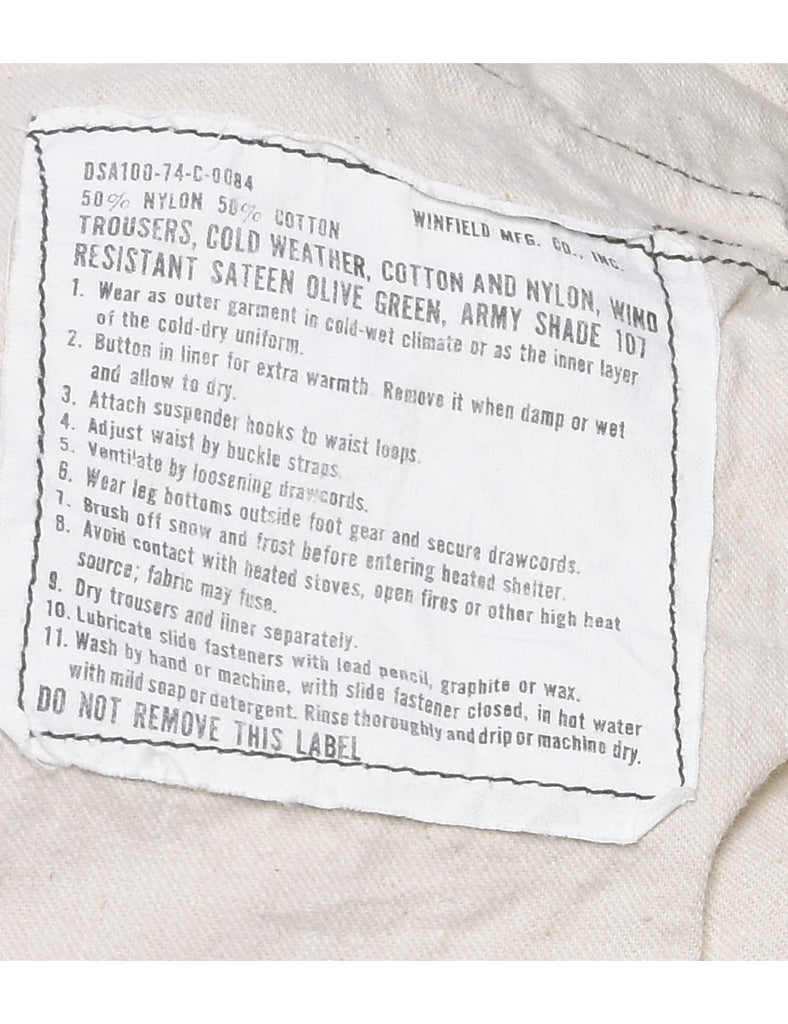 DSA100-74-C-0084
50% NYLON 50% COTTON WINFIELD MFG. CO., INC.
TROUSERS, COLD WEATHER, COTTON AND NYLON, WIND
RESISTANT SATEEN OLIVE GREEN, ARMY SHADE 107
1. Wear as outer garment in cold-wet climate or as the inner layer
of the cold-dry uniform.
2. Button in liner for extra warmth. Remove it when damp or wet
and allow to dry.
3. Attach suspender hooks to waist loops.
4. Adjust waist by buckle straps.
5. Ventilate by loosening drawcords.
6. Wear leg bottoms outside foot gear and secure drawcords.
7. Brush off snow and frost before entering heated shelter.
8. Avoid contact with heated stoves, open fires or other high heat
source; fabric may fuse.
9. Dry trousers and liner separately.
10. Lubricate slide fasteners with lead pencil, graphite or wax.
11. Wash by hand or machine, with slide fastener closed, in hot water
with mild soap or detergent. Rinse thoroughly and drip or machine dry.
DO NOT REMOVE THIS LABEL